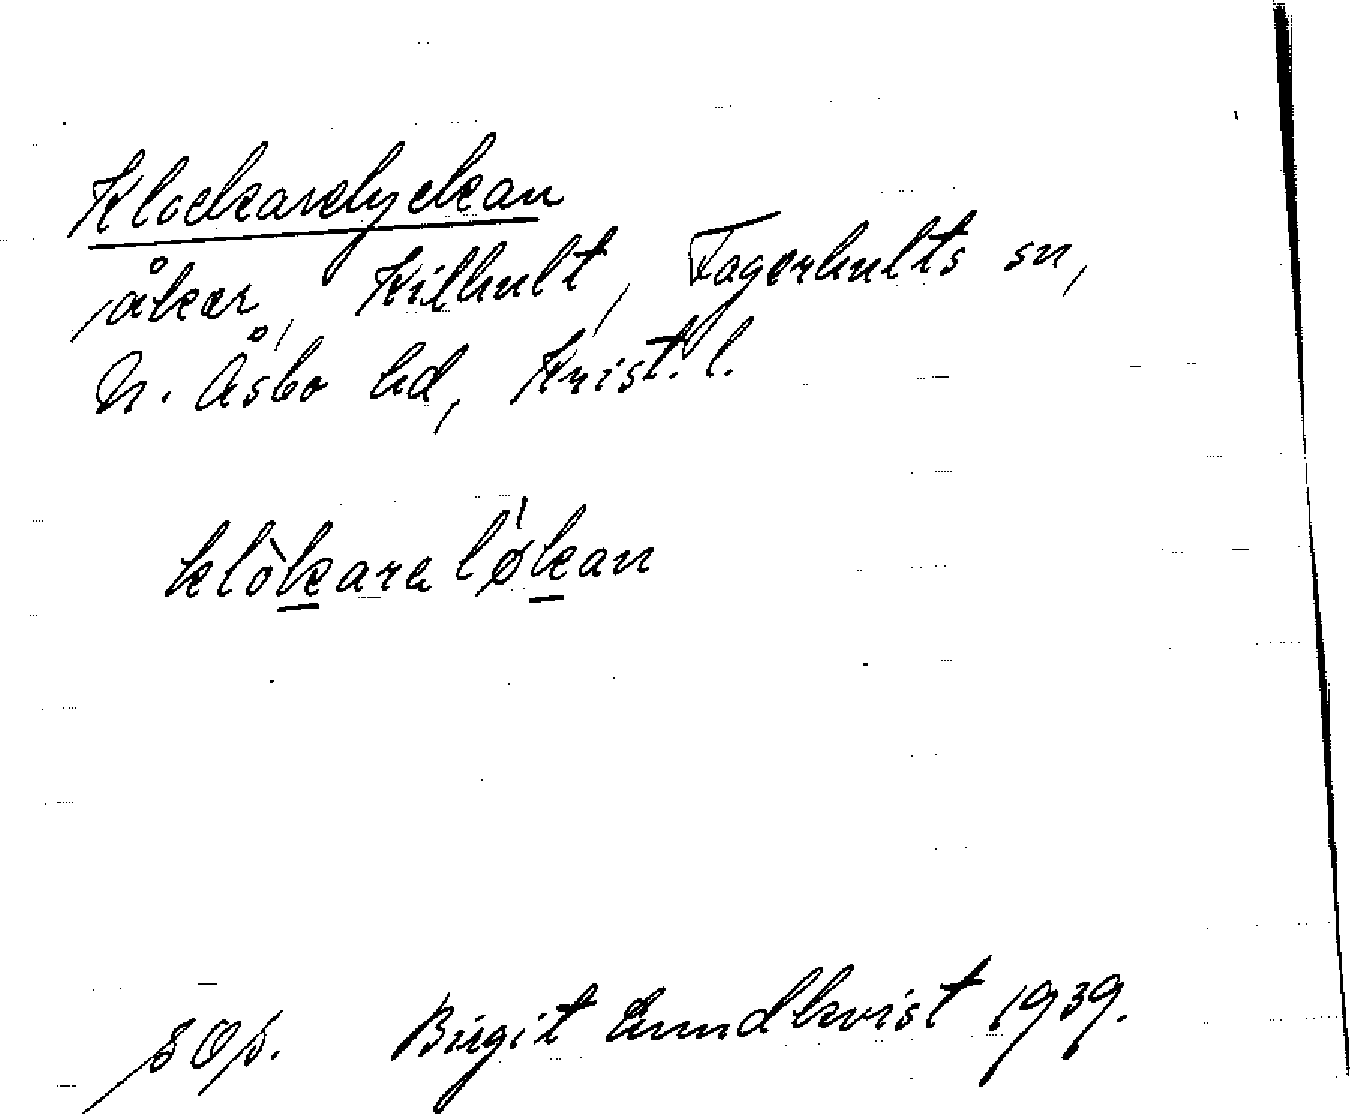 Klockarelyckan
åker, Kilhult, Fagerhults sn,
N. Åsbo hd, Krist. l.
klòkaraløkan
Birgit Lundkvist 1939.